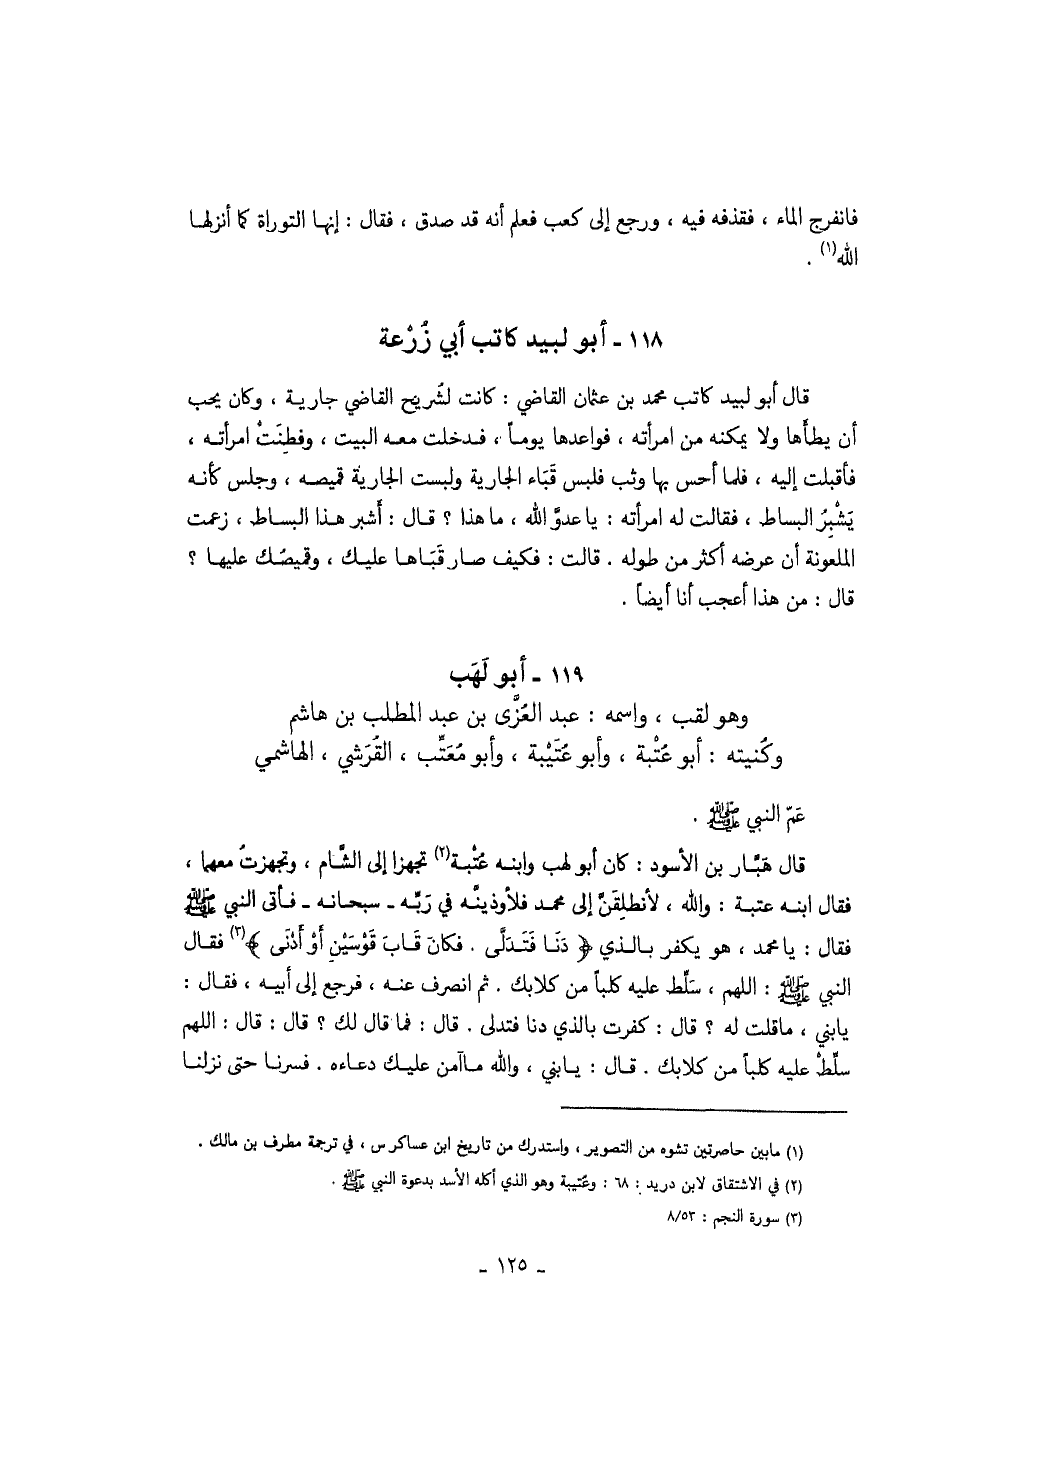 فانفرج الماء ، فقذفه فيه ، ورجع إلى كعب فعلم أنه قد صدق ، فقال : إنها التوراة كما أنزلها
الله(١) .
١١٨ ـ أبو لبيد كاتب أبي زُرْعة
قال أبو لبيد كاتب محمد بن عثمان القاضي : كانت لشُريح القاضي جارية ، وكان يحب
أن يطأَها ولا يمكنه من امرأته ، فواعدها يوماً ، فدخلت معه البيت ، وفطِنَتْ امرأته ،
فأقبلت إليه ، فلما أحس بها وثب فلبس قَبَاء الجارية ولبست الجارية قميصه ، وجلس كأنه
يَشْبِرُ البساط ، فقالت له امرأته : يا عدوَّ الله ، ما هذا ؟ قال : أَشبر هذا البساط ، زعمت
الملعونة أن عرضه أكثر من طوله . قالت : فكيف صار قَبَاها عليك ، وقميصُك عليها ؟
قال : من هذا أعجب أنا أيضاً .
١١٩ ـ أبو لَهَب
وهو لقب ، واسمه : عبد العُزَّى بن عبد المطلب بن هاشم
وكُنيته : أبو عُتْبة ، وأبو عُتَيْبة ، وأبو مُعَتِّب ، القُرَشي ، الهاشمي
عَمّ النبي ﷺ .
قال هَبَّار بن الأسود : كان أبو لهب وابنه عُتْبة(٢) تجهزا إلى الشَّام ، وتجهزتُ معهما ،
فقال ابنه عتبة : والله ، لأنطلِقَنَّ إلى محمد فلأوذينَّه في رَبِّه ـ سبحانه ـ فأتى النبي ﷺ
فقال : يا محمد ، هو يكفر بالذي ﴿ دَنَا فَتَدَلَّى . فكانَ قَابَ قَوْسَيْنِ أَوْ أَدْنَى ﴾(٣) فقال
النبي ﷺ : اللهم ، سَلِّط عليه كلباً من كلابك . ثم انصرف عنه ، فرجع إلى أبيه ، فقال :
يابني ، ماقلت له ؟ قال : كفرت بالذي دنا فتدلى . قال : فما قال لك ؟ قال : قال : اللهم
سلِّطْ عليه كلباً من كلابك . قال : يابني ، والله ماآمن عليك دعاءه . فسرنا حتى نزلنا
(١) مابين حاصرتين تشوه من التصوير ، واستدرك من تاريخ ابن عساكر س ، في ترجمة مطرف بن مالك .
(٢) في الاشتقاق لابن دريد : ٦٨ : وعُتيبة وهو الذي أكله الأسد بدعوة النبي ﷺ .
(٣) سورة النجم : ٨/٥٣
ـ ١٢٥ ـ